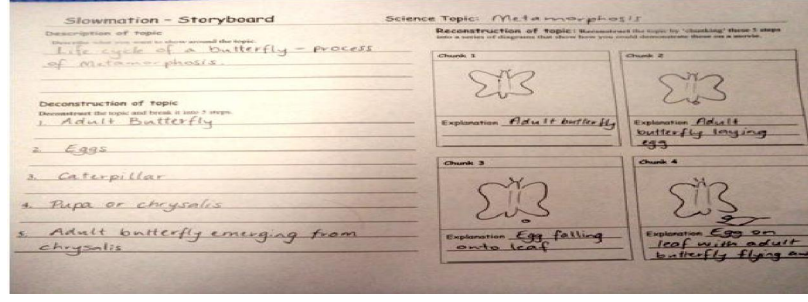 Slowmation - Storyboard
Science Topic: Metamorphosis
Description of topic
Describe what you want to show around the topic.
Life cycle of a butterfly - process
of metamorphosis.
Deconstruction of topic
Deconstruct the topic and break it into 5 steps.
1. Adult Butterfly
2. Eggs
3. Caterpillar
4. Pupa or chrysalis
5. Adult butterfly emerging from
chrysalis
Reconstruction of topic: Reconstruct the topic by 'chunking' these 5 steps
into a series of diagrams that show how you could demonstrate these on a movie.
Chunk 1
Explanation Adult butterfly
Chunk 2
Explanation Adult
butterfly laying
egg
Chunk 3
Explanation Egg falling
onto leaf
Chunk 4
Explanation Egg on
leaf with adult
butterfly flying